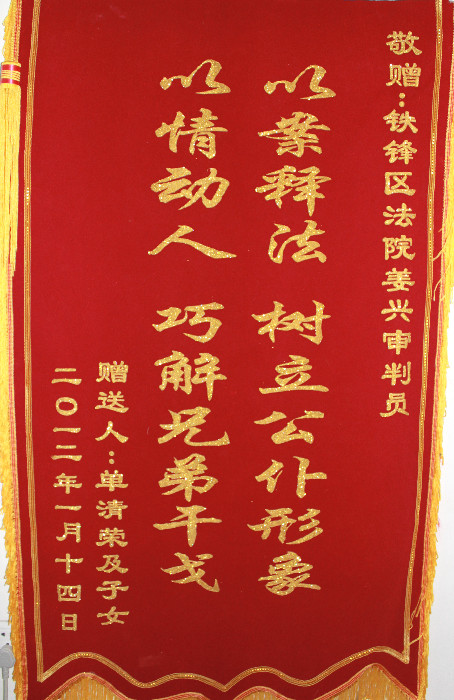 敬赠：铁锋区法院姜兴审判员
以案释法 树立公仆形象
以情动人 巧解兄弟干戈
赠送人：单清荣及子女
二〇一二年一月十四日